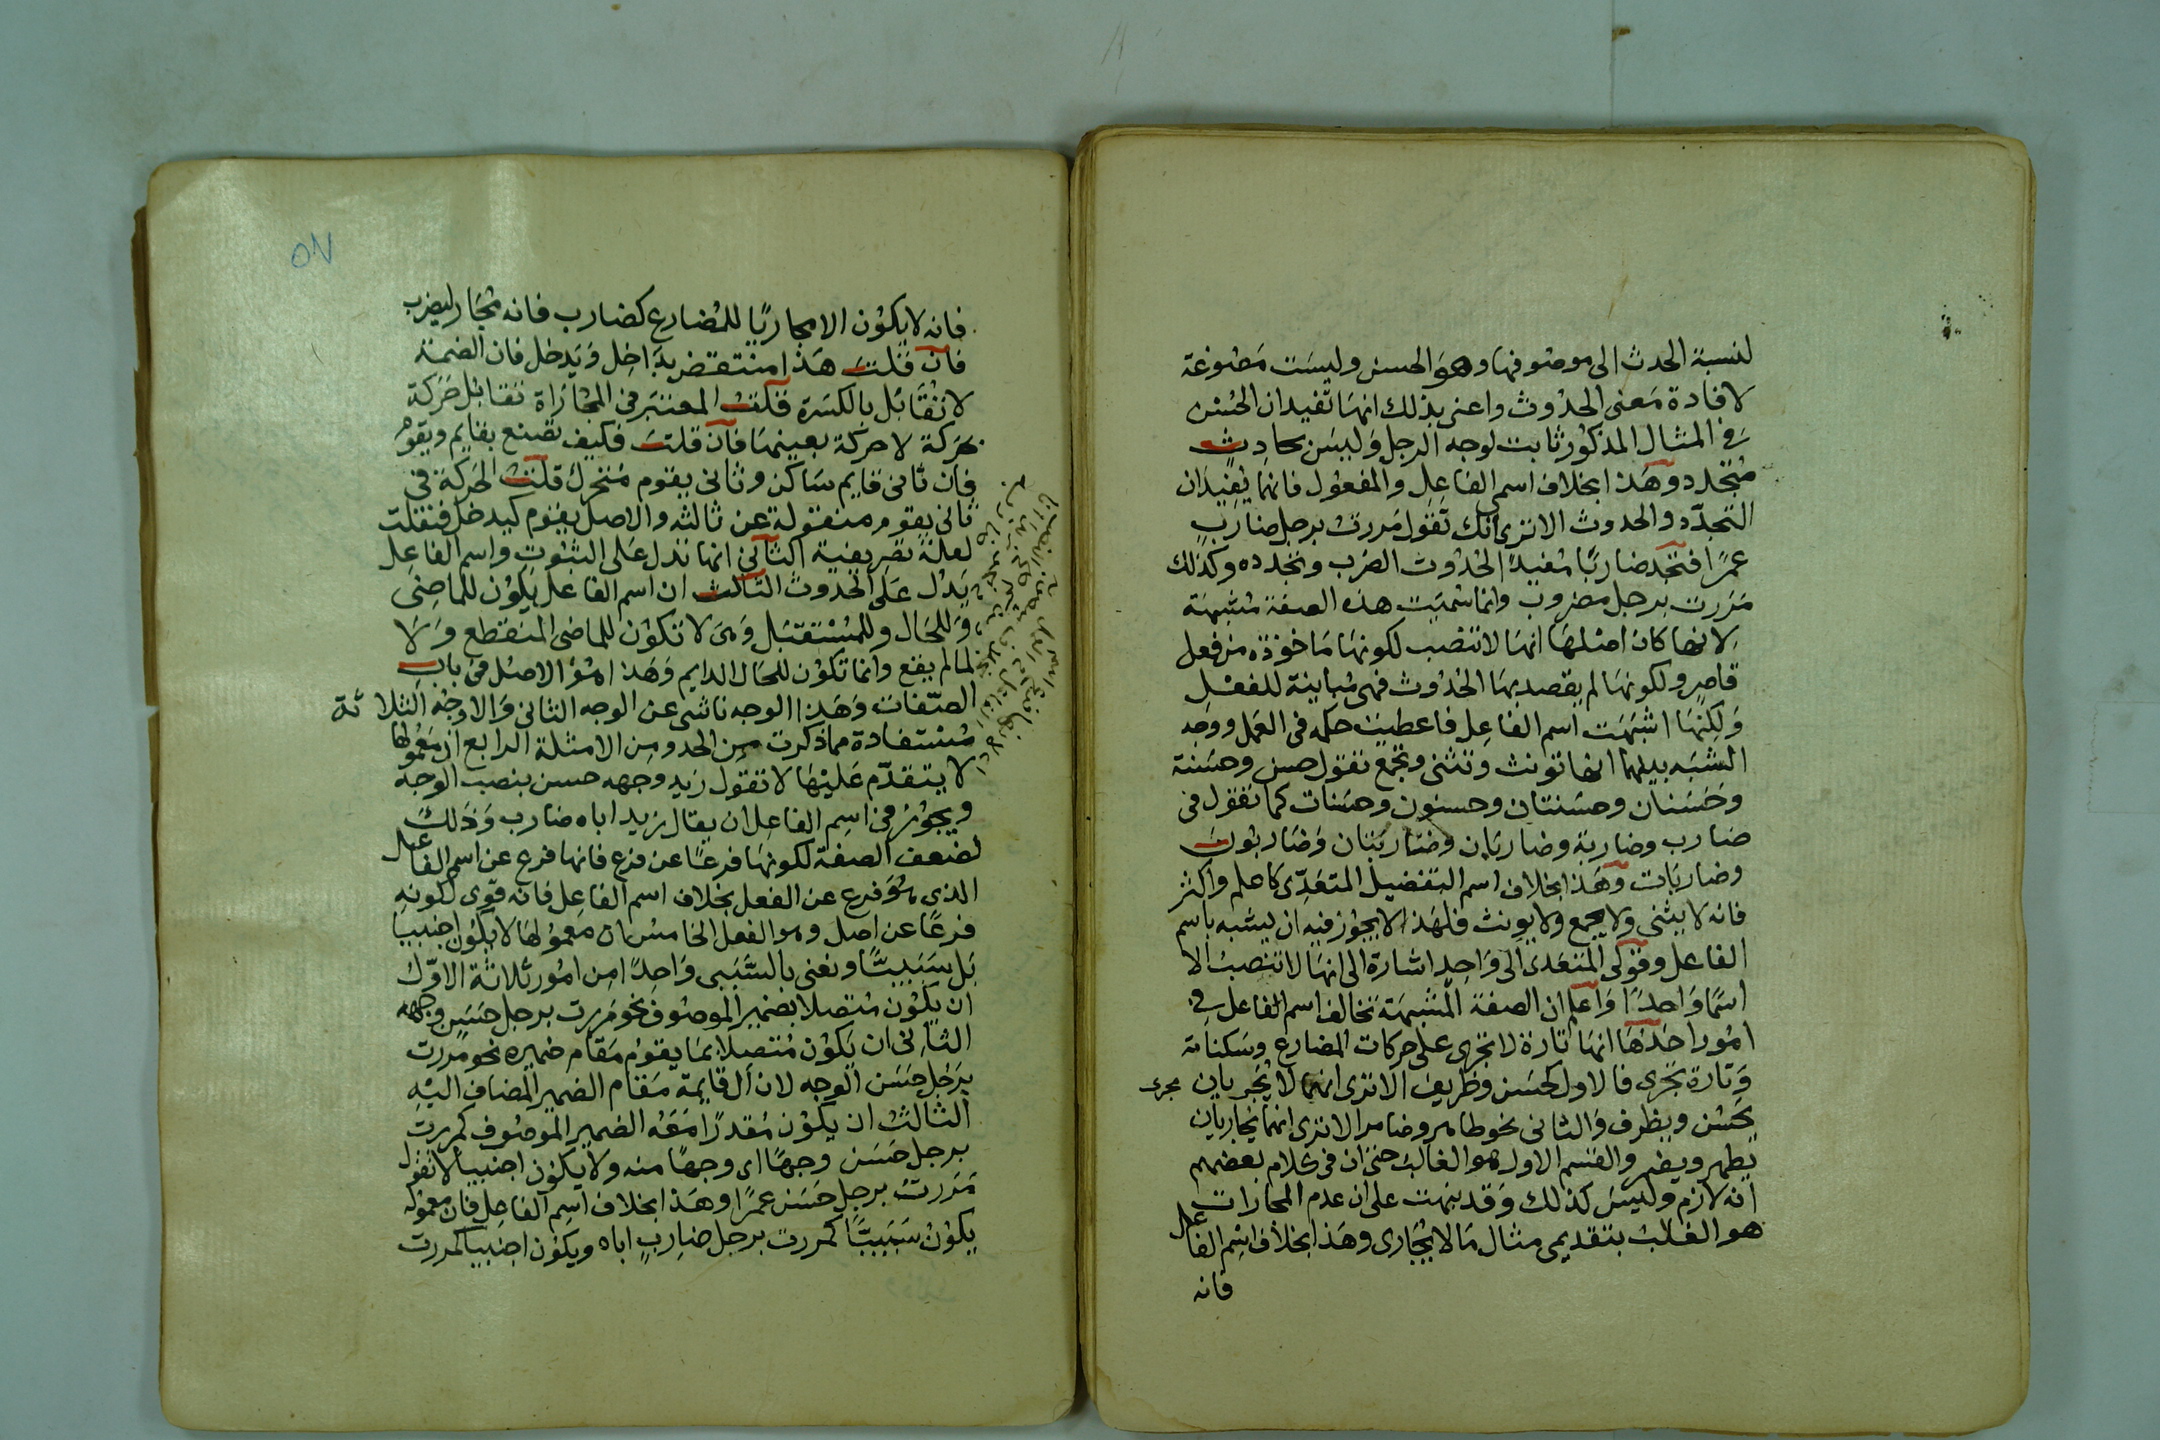 لنسبة الحدث الى موصوفها وهو الحسن وليست مصوغة
لافادة معنى الحدوث واعنى بذلك انها تفيد ان الحسن
في المثال المذكور ثابت لوجه الرجل وليس بحادث
متجدد وهذا بخلاف اسمى الفاعل والمفعول فانهما يفيدان
التجدد والحدوث الا ترى انك تقول مررت برجل ضارب
عمرا فتجد ضاربا مفيدا لحدوث الضرب وتجدده وكذلك
مررت برجل مضروب وانما سميت هذه الصفة مشبهة
لانها كان اصلها انها لا تنصب لكونها ماخوذة من فعل
قاصر ولكونها لم يقصد بها الحدوث فهى مباينة للفعل
ولكنها اشبهت اسم الفاعل فاعطيت حكمه فى العمل ووجه
الشبه بينهما انها تونث وتثنى وتجمع تقول حسن وحسنة
وحسنان وحسنتان وحسنون وحسنات كما تقول فى
ضارب وضاربة وضاربان وضاربتان وضاربون
وضاربات وهذا بخلاف اسم التفضيل المتعدى كاعلم واكثر
فانه لا يثنى ولا يجمع ولا يونث فلهذا لا يجوز فيه ان يشبه باسم
الفاعل وقولى المتعدى الى واحد اشارة الى انها لا تنصب الا
اسما واحدا واعلم ان الصفة المشبهة تخالف اسم الفاعل في
امور احدها انها تارة لا تجرى على حركات المضارع وسكناته
وتارة تجرى فالاول كحسن وظريف الا ترى انهما لا يجريان مجرى
يحسن ويظرف والثانى نحو طاهر وضامر الا ترى انهما يجاريان
يطهر ويضمر والقسم الاول هو الغالب حتى ان فى كلام بعضهم
انه لازم وليس كذلك وقد نبهت على ان عدم المجارات
هو الغالب بتقديمى مثال ما لا يجارى وهذا بخلاف اسم الفاعل
فانه
٥٧
فانه لا يكون الا مجاريا للمضارع كضارب فانه مجار ليضرب
فان قلت هذا منتقض بداخل ويدخل فان الضمة
لا تقابل بالكسرة قلت المعتبر فى المجاراة تقابل حركة
بحركة لا حركة بعينها فان قلت فكيف تصنع بقايم ويقوم
فان ثانى قايم ساكن وثانى يقوم متحرك قلت الحركة فى
ثانى يقوم منقولة عن ثالثه والاصل يقوم كيدخل فنقلت
لعلة تصريفية الثانى انها تدل على الثبوت واسم الفاعل
يدل على الحدوث الثالث ان اسم الفاعل يكون للماضى
وللحال وللمستقبل وهى لا تكون للماضى المنقطع ولا
لما لم يقع وانما تكون للحال الدايم وهذا هو الاصل فى باب
الصفات وهذا الوجه ناشى عن الوجه الثانى والاوجه الثلاثة
مستفادة مما ذكرت من الحد ومن الامثلة الرابع ان معمولها
لا يتقدم عليها لا تقول زيد وجهه حسن بنصب الوجه
ويجوز فى اسم الفاعل ان يقال زيد اباه ضارب وذلك
لضعف الصفة لكونها فرعا عن فرع فانها فرع عن اسم الفاعل
الذى هو فرع عن الفعل بخلاف اسم الفاعل فانه قوى لكونه
فرعا عن اصل وهو الفعل الخامس ان معمولها لا يكون اجنبيا
بل سببيا ونعنى بالسببى واحدا من امور ثلاثة الاول
ان يكون متصلا بضمير الموصوف نحو مررت برجل حسن وجهه
الثانى ان يكون متصلا بما يقوم مقام ضميره نحو مررت
برجل حسن الوجه لان ال قايمة مقام الضمير المضاف اليه
الثالث ان يكون مقدرا معه الضمير الموصوف كمررت
برجل حسن وجها اى وجها منه ولا يكون اجنبيا لا تقول
مررت برجل حسن عمرا وهذا بخلاف اسم الفاعل فان معموله
يكون سببيا كمررت برجل ضارب اباه ويكون اجنبيا كمررت